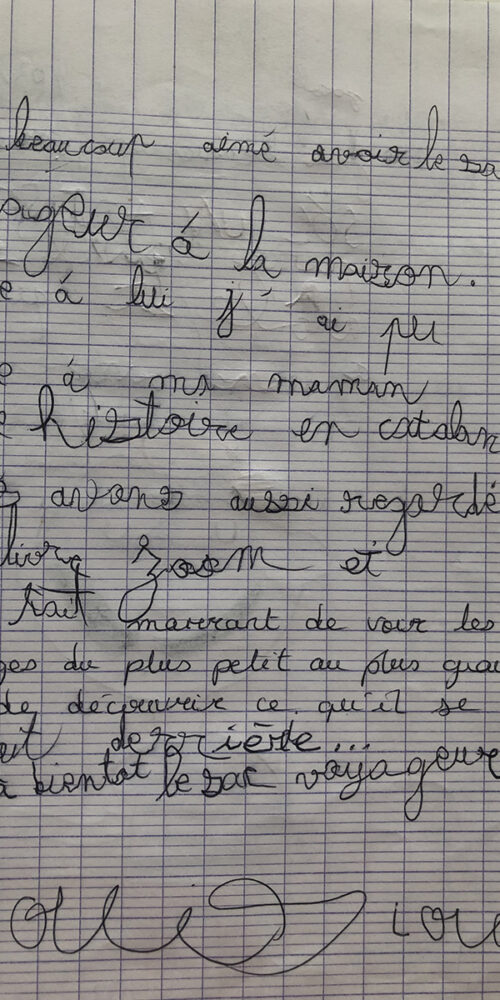 beaucoup aimé avoir le sa
ageur à la maison.
e à lui j'ai pu
e à ma maman
e histoire en catalan
s avons aussi regardé
livre Zoom et
tait marrant de voir les
ges du plus petit au plus gran
de découvrir ce qu'il se
ut derrière...
à bientot le sac voyageur